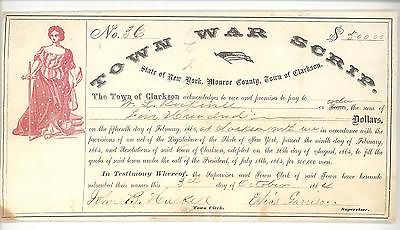 No. 36
$ 500.00
TOWN WAR SCRIP.
State of New York, Monroe County, Town of Clarkson.
The Town of Clarkson acknowledges to owe and promises to pay to
W. L. or order the sum of
Hundred Dollars,
on the fifteenth day of February, 186 , at in accordance with the
provisions of an act of the Legislature of the State of New York, passed the ninth day of February,
1864, and Resolutions of said Town of Clarkson, adopted on the 16th day of August, 1864, to fill the
quota of said town under the call of the President, of July 18th, 1864, for 500,000 men.
In Testimony Whereof, the Supervisor and Town Clerk of said Town have hereunto
subscribed their names this 3d day of October 1864
Wm. Town Clerk. Supervisor.